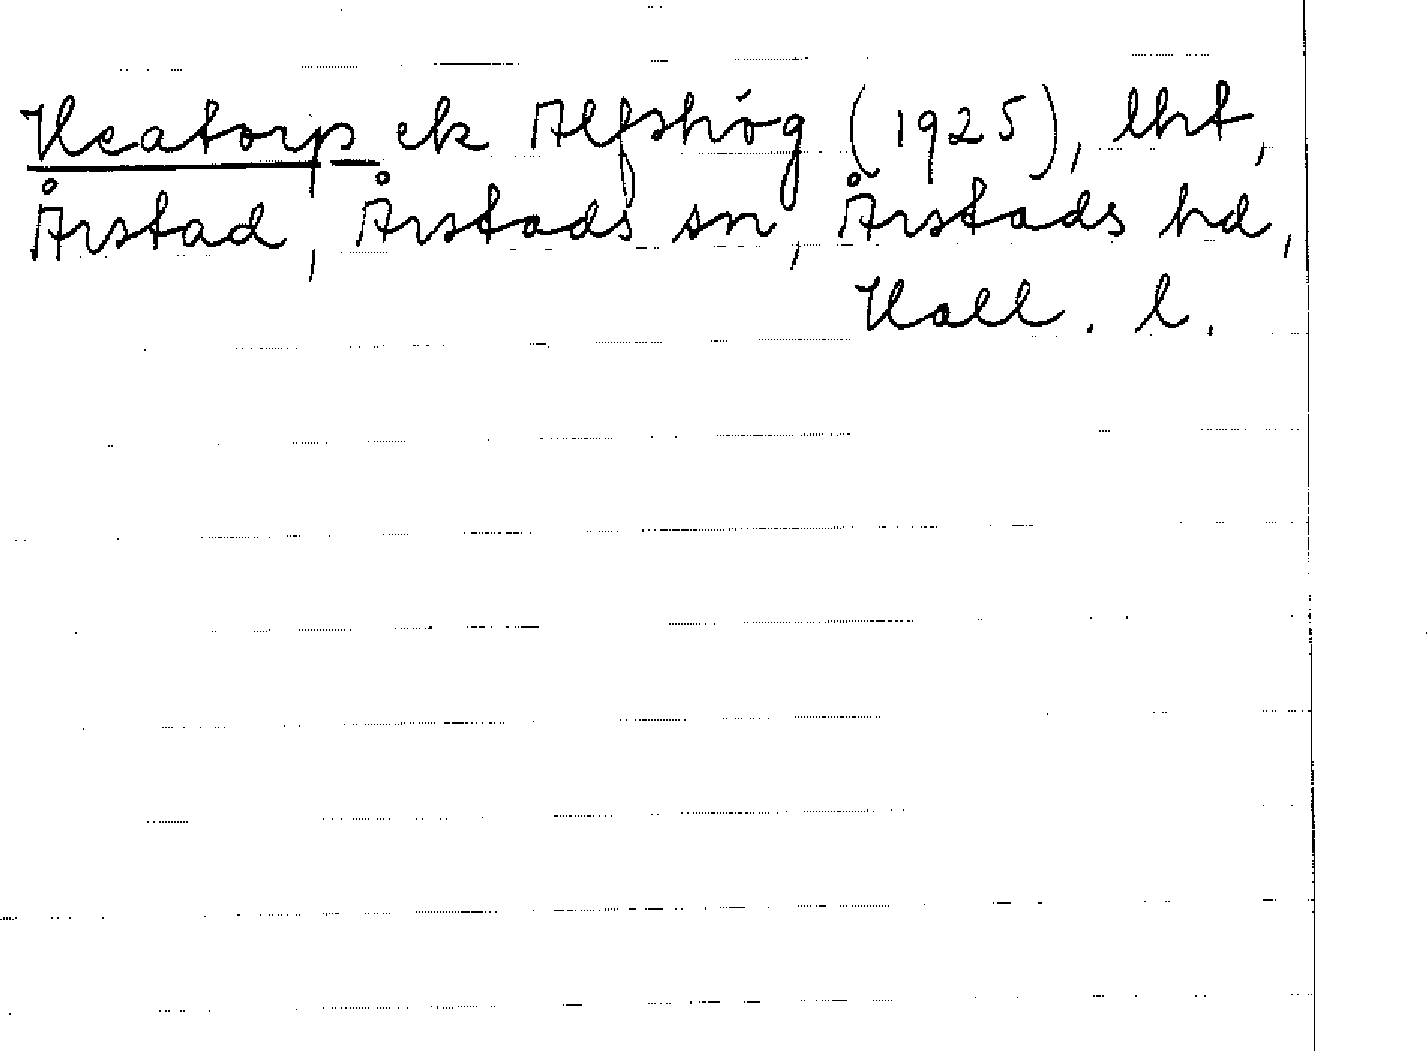 Heatorp ek Alfshög (1925), lht,
Årstad, Årstads sn, Årstads hd,
Hall. l.